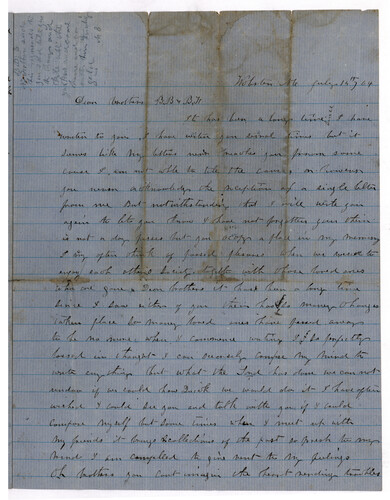 July 12th 64
Dear brothers B.B & B.H
It has been a long time I have
wrote to you I have writen you several times but it
seems like my letters never reaches you from some
cause I am not able to tell the cause on however
you never acknowledge the reception of a single letter
from me But notwithstanding that I will write you
again to let you know I have not forgotten you there
is not a day passes but you ocupy a place in my memory
I ofen think of passed pleasures when we used to
enjoy each others Society together with those loved ones
who are gone. Dear brothers it has been a long time
since I saw either of you there has so many changes
taken place So many loved ones have passed away
to be no more when I commence writing I get so perfectly
lossed in thought I can scarcely compose my mind to
write any thing But what the Lord has done we can not
undow if we could how quick we would do it I have ofen
wished I could see you and talk with you if I could
compose my self but some times when I meet up with
my friends it brings recollections of the past so fresh to my
mind I am compelled to give vent to my feelings
Oh brothers you cant imagin the heart rending troubles